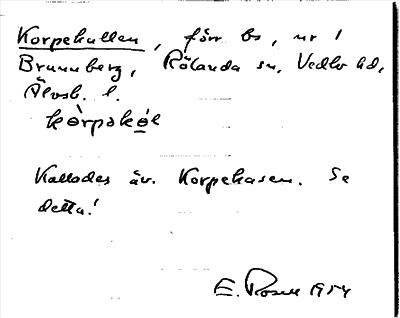 Korpekullen, förr bs, nr 1
Brunnberg, Rölanda sn, Vedbo hd,
Älvsb. l.
kòrpekól
Kallades äv. Korpekasen. Se
detta!
E. Rosell 1954